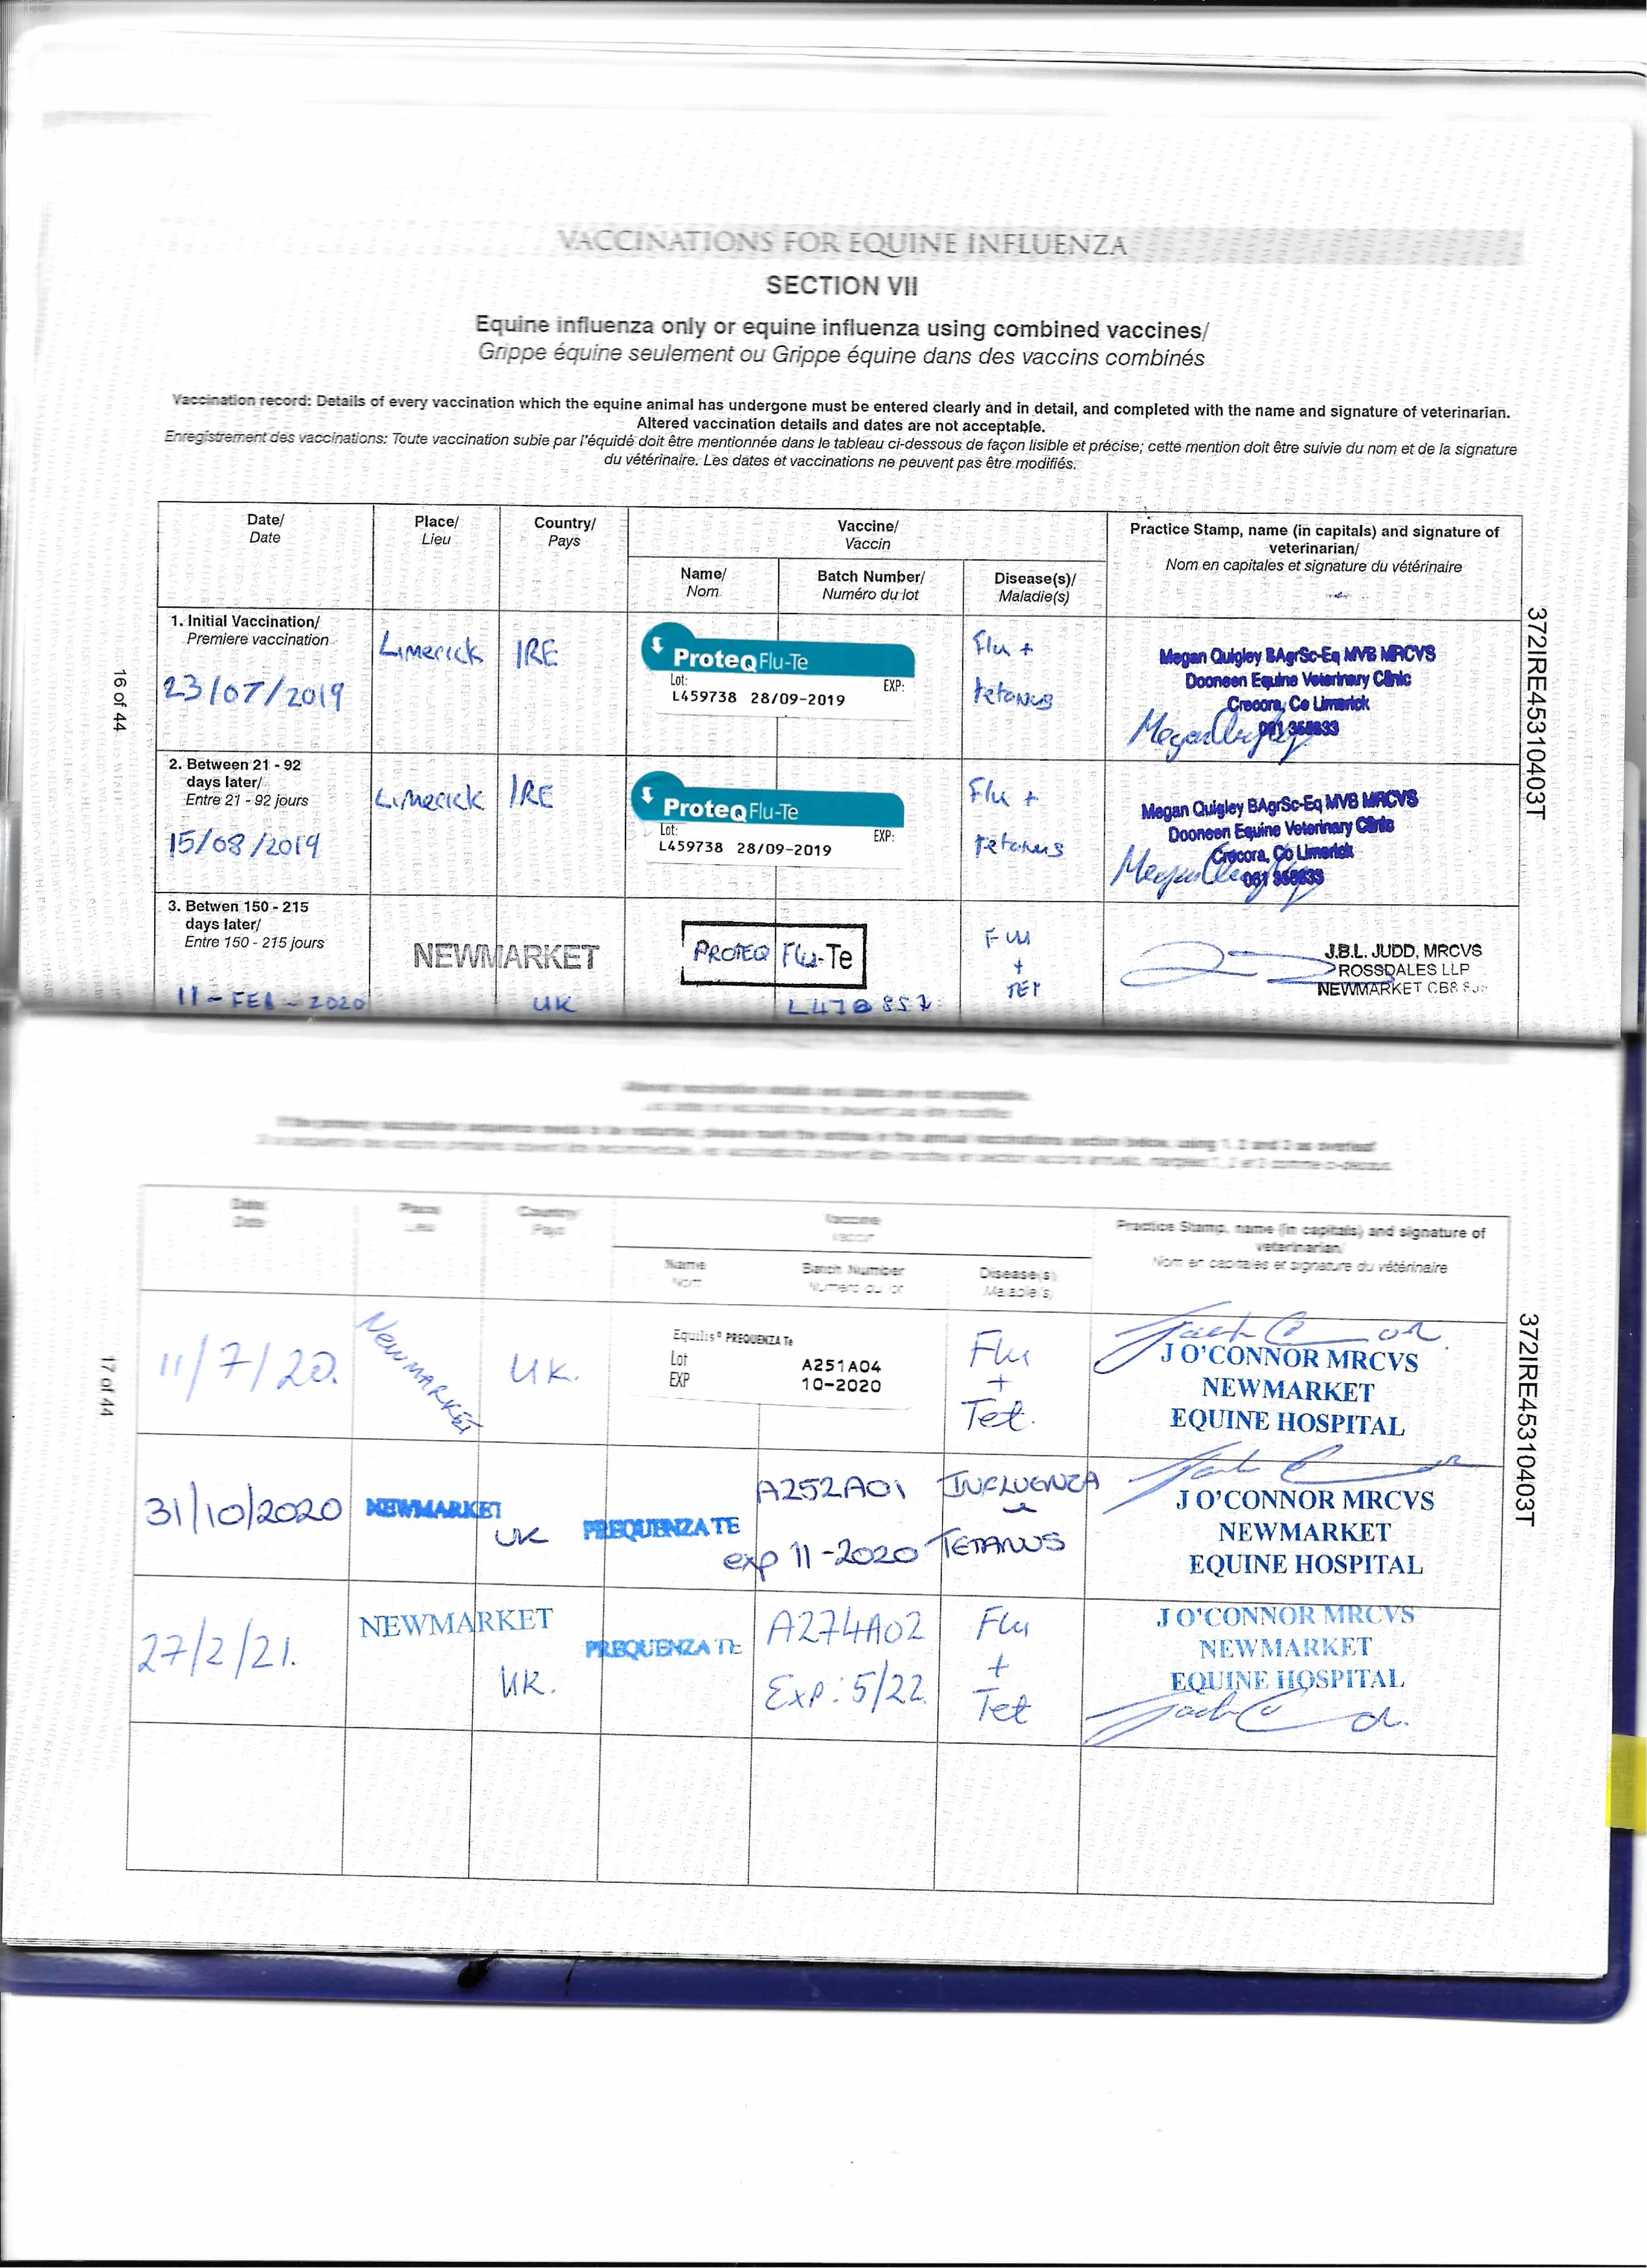 VACCINATIONS FOR EQUINE INFLUENZA
SECTION VII
Equine influenza only or equine influenza using combined vaccines/
Grippe équine seulement ou Grippe équine dans des vaccins combinés
Vaccination record: Details of every vaccination which the equine animal has undergone must be entered clearly and in detail, and completed with the name and signature of veterinarian.
Altered vaccination details and dates are not acceptable.
Enregistrement des vaccinations: Toute vaccination subie par l'équidé doit être mentionnée dans le tableau ci-dessous de façon lisible et précise; cette mention doit être suivie du nom et de la signature
du vétérinaire. Les dates et vaccinations ne peuvent pas être modifiés.
Date/
Date
Place/
Lieu
Country/
Pays
Vaccine/
Vaccin
Name/
Nom
Batch Number/
Numéro du lot
Disease(s)/
Maladie(s)
Practice Stamp, name (in capitals) and signature of
veterinarian/
Nom en capitales et signature du vétérinaire
1. Initial Vaccination/
Premiere vaccination
23/07/2019
Limerick
IRE
ProteqFlu-Te
Lot: EXP:
L459738 28/09-2019
Flu +
tetanus
Megan Quigley BAgrSc-Eq MVB MRCVS
Dooneen Equine Veterinary Clinic
Crecora, Co Limerick
2. Between 21 - 92
days later/
Entre 21 - 92 jours
15/08/2019
Limerick
IRE
ProteqFlu-Te
Lot: EXP:
L459738 28/09-2019
Flu +
tetanus
Megan Quigley BAgrSc-Eq MVB MRCVS
Dooneen Equine Veterinary Clinic
Crecora, Co Limerick
3. Betwen 150 - 215
days later/
Entre 150 - 215 jours
11 - FEB - 2020
NEWMARKET
UK
PROTEQ Flu-Te
Flu
+
TET
J.B.L. JUDD, MRCVS
ROSSDALES LLP
NEWMARKET CB8
16 of 44
372IRE45310403T
Date/
Date
Place/
Lieu
Country/
Pays
Vaccine
Vaccin
Name
Nom
Batch Number
Numéro du lot
Disease(s)
Maladie(s)
Practice Stamp, name (in capitals) and signature of
veterinarian/
Nom en capitales et signature du vétérinaire
11/7/20.
NEWMARKET
UK.
Equilis® PREQUENZA Te
Lot A251A04
EXP 10-2020
Flu
+
Tet.
J O'CONNOR MRCVS
NEWMARKET
EQUINE HOSPITAL
31/10/2020
NEWMARKET
UK
PREQUENZA TE
A252A01
exp 11-2020
INFLUENZA
TETANUS
J O'CONNOR MRCVS
NEWMARKET
EQUINE HOSPITAL
27/2/21.
NEWMARKET
UK.
PREQUENZA TE
A274A02
Exp: 5/22
Flu
+
Tet
J O'CONNOR MRCVS
NEWMARKET
EQUINE HOSPITAL
17 of 44
372IRE45310403T